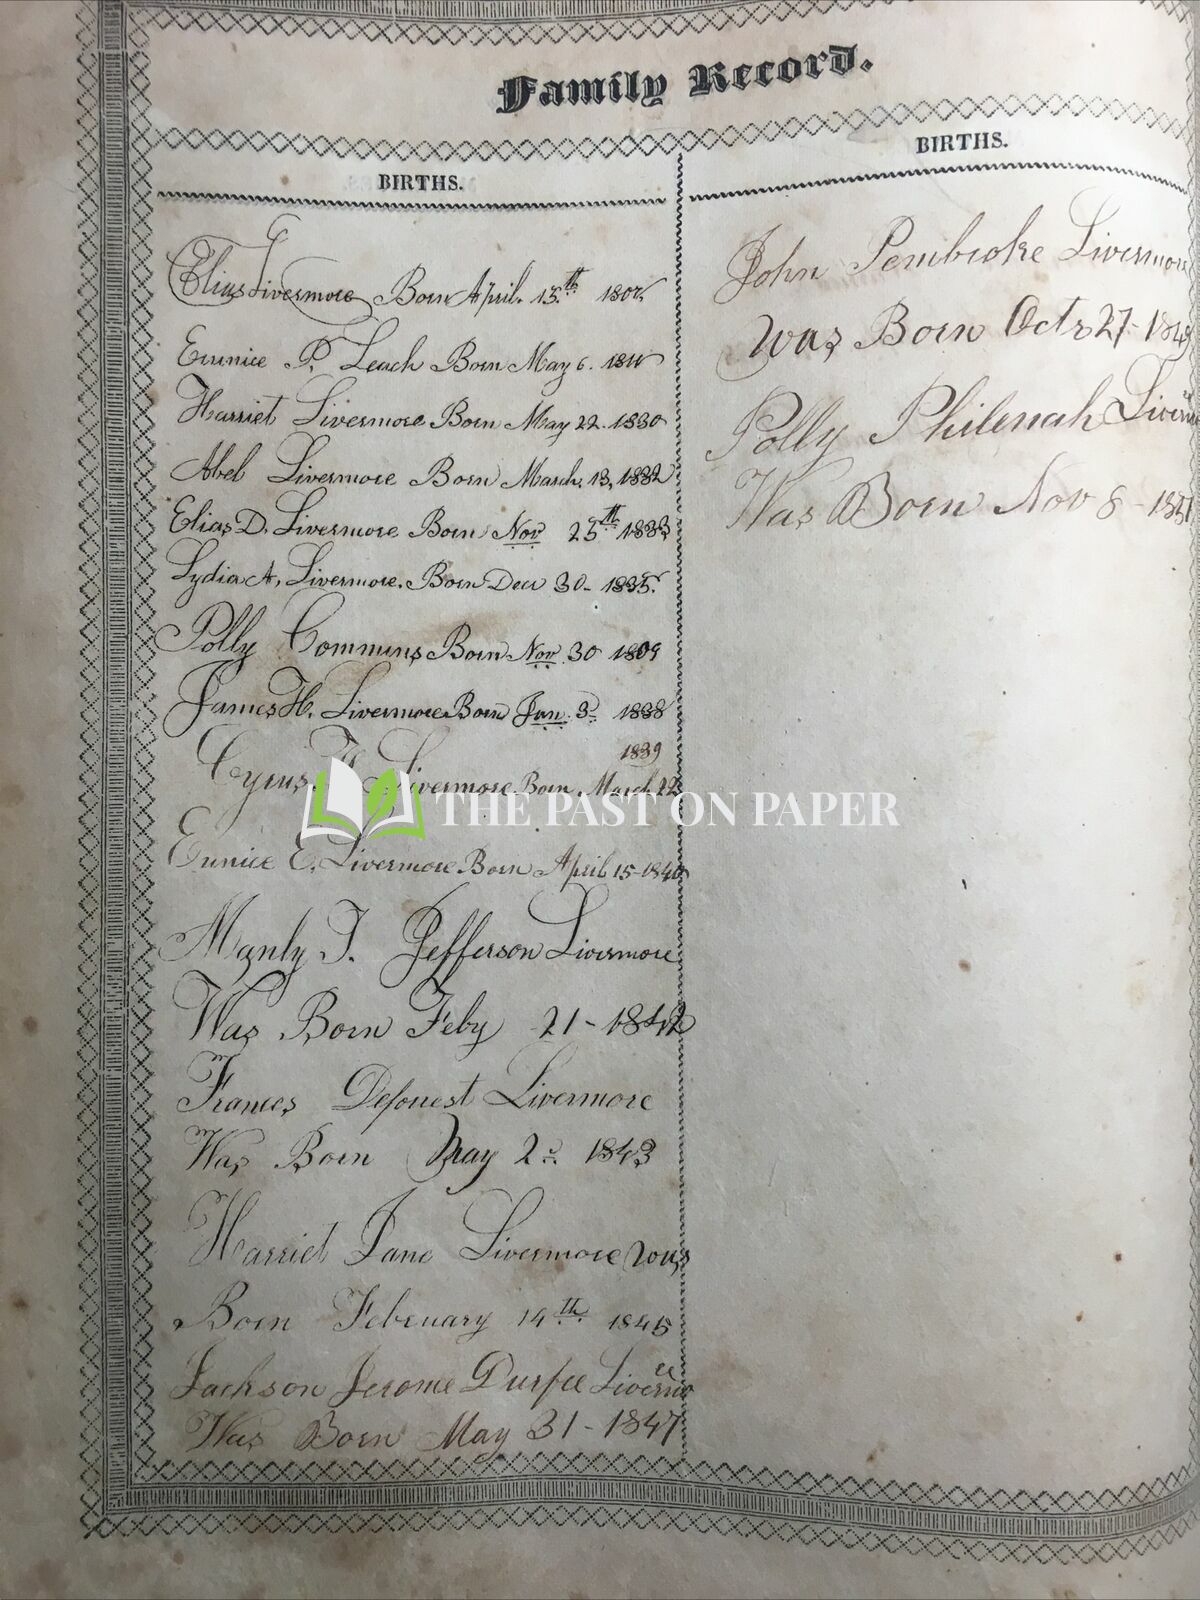 Family Record.
BIRTHS.
Elias Livermore Born April. 15th 1807
Eunice P. Leach Born May 6. 1811
Harriet Livermore Born May 22. 1830
Abel Livermore Born March. 13, 1832
Elias D. Livermore Born Nov 25th 1833
Lydia A, Livermore. Born Decr 30- 1835.
Polly Commins Born Nov. 30 1809
James H. Livermore Born Jan. 3d 1838
1839
Cyrus Livermore Born March 22
THE PAST ON PAPER
Eunice E. Livermore Born April 15-1840
Manly T. Jefferson Livermore
Was Born Feby 21-1842
Frances Deforest Livermore
Was Born May 2d 1843
Harriet Jane Livermore was
Born February 14th 1845
Jackson Jerome Durfee
Was Born May 31-1847
BIRTHS.
John Pembroke Livermore
was Born Octr 27-
Polly Philenah
Was Born Nov 8-1851